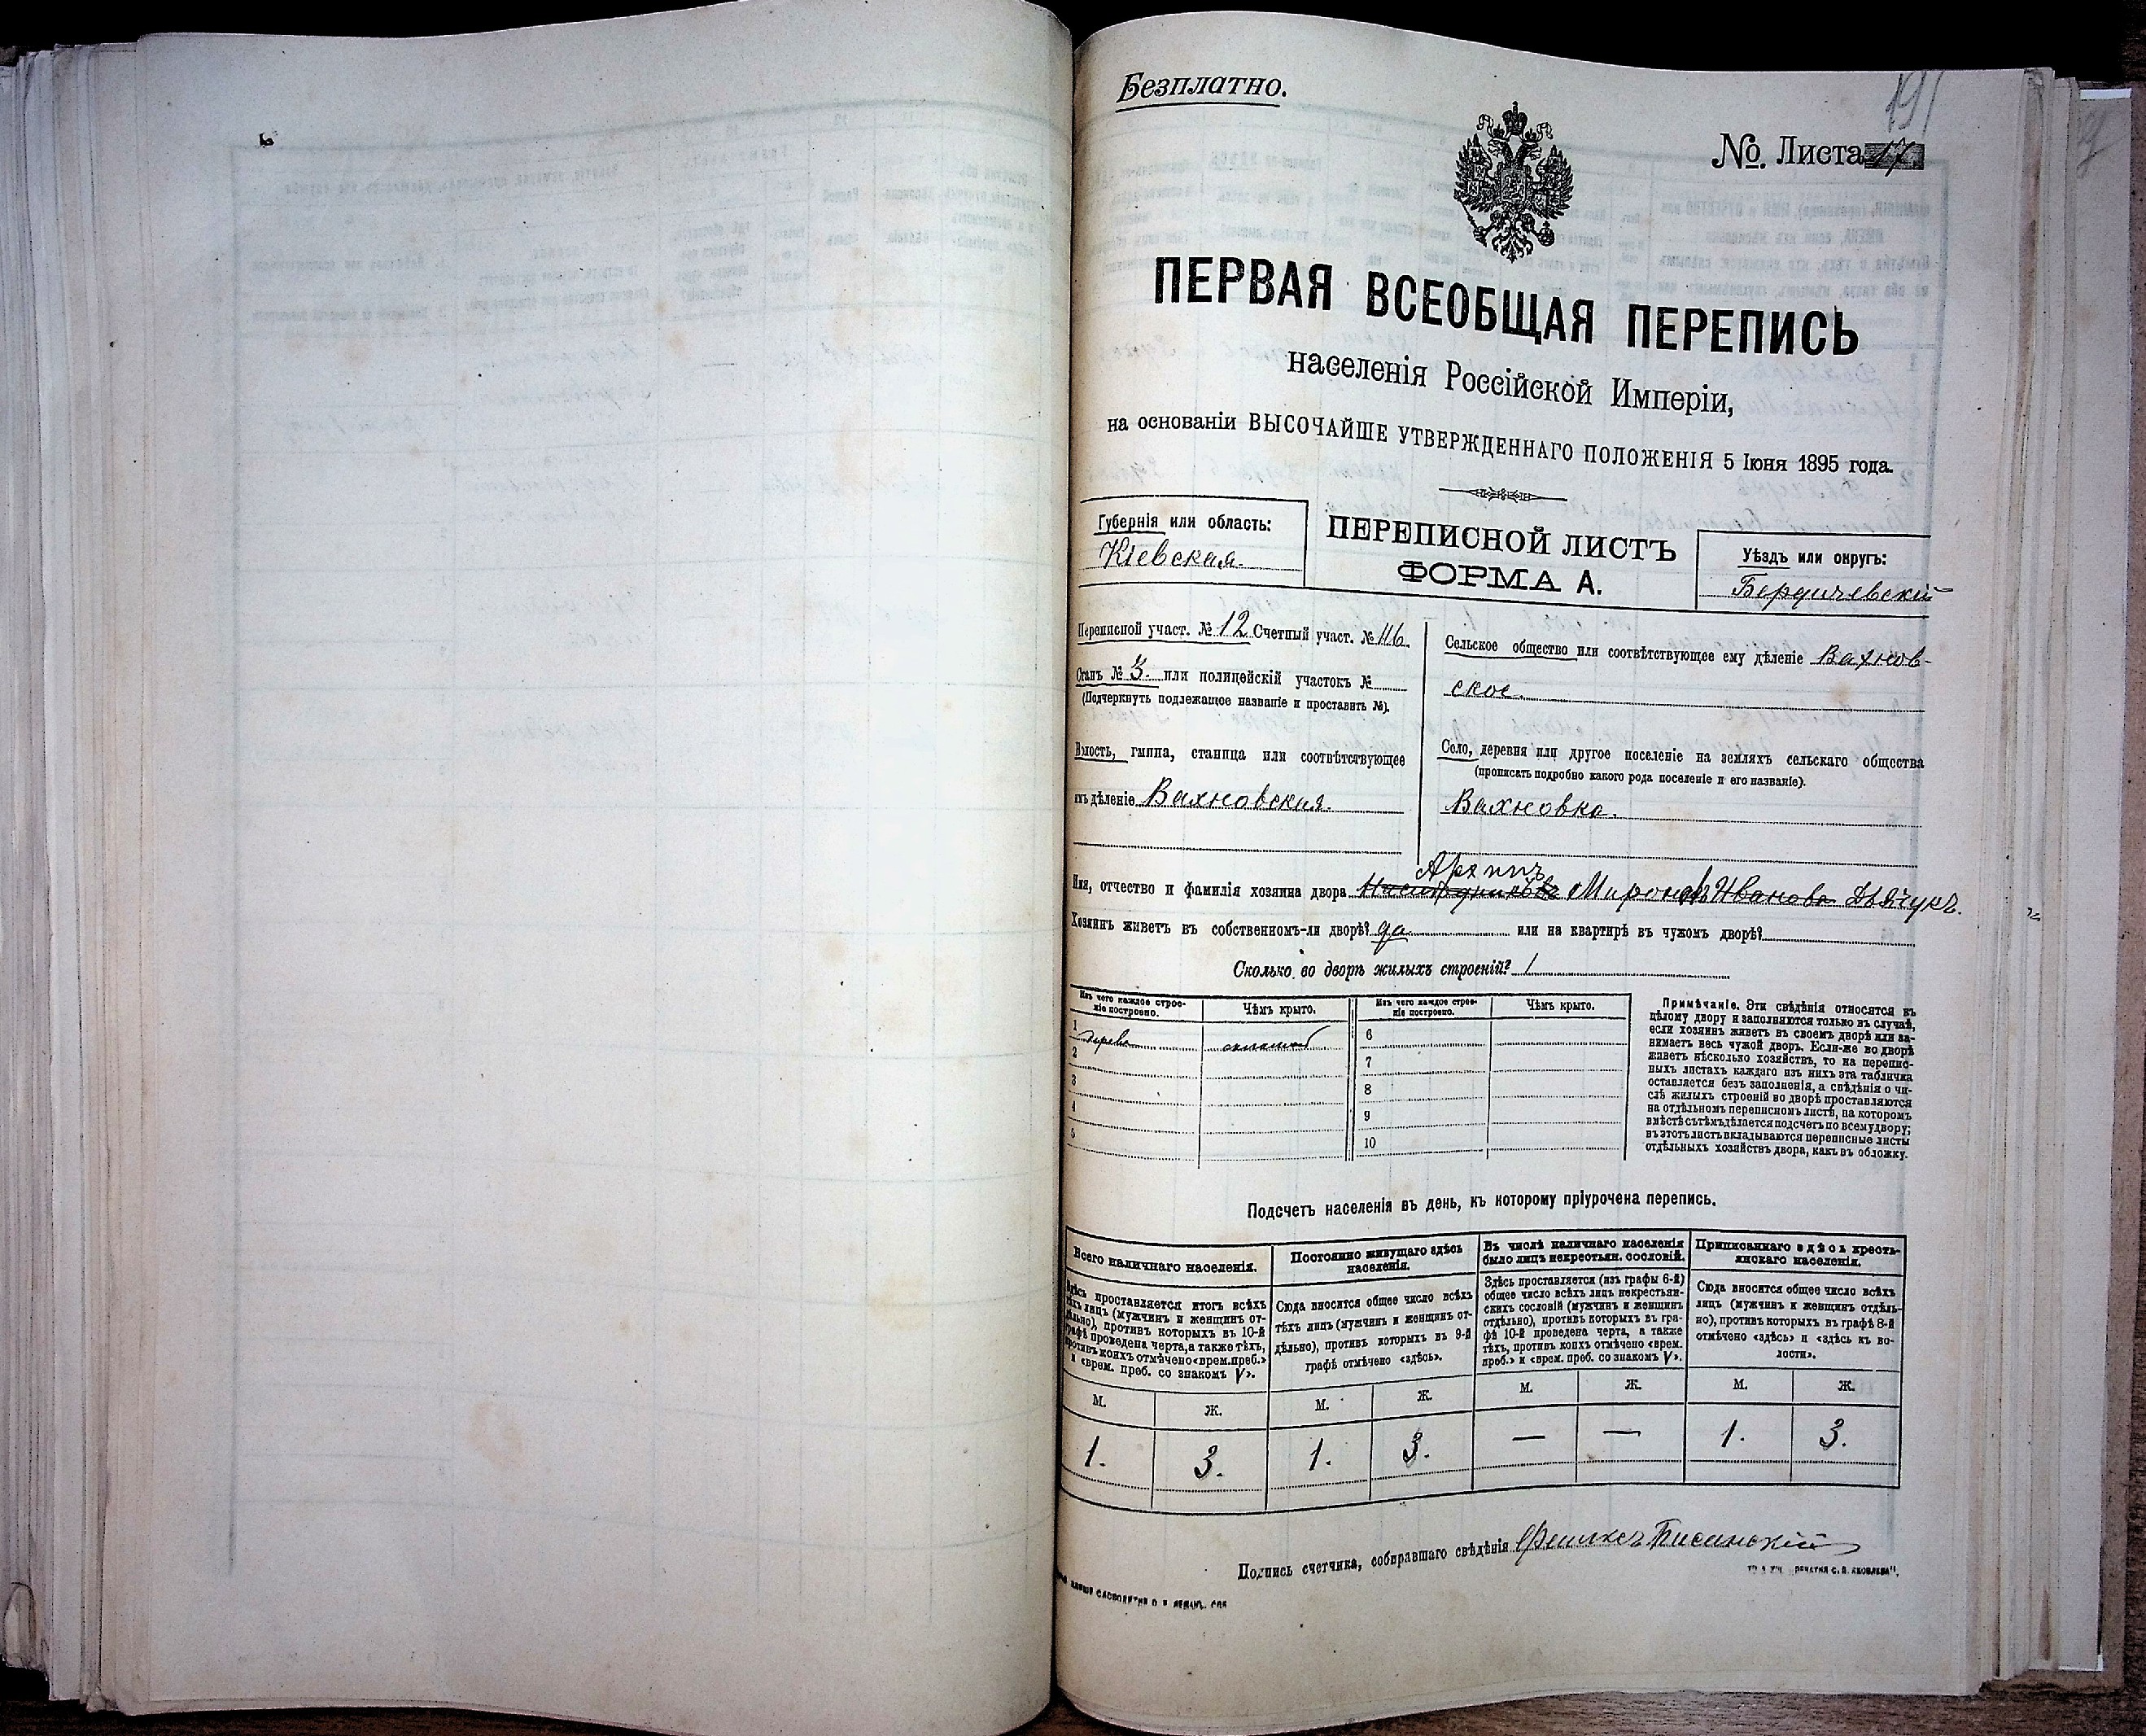 Безплатно.
191
№. Листа 17
ПЕРВАЯ ВСЕОБЩАЯ ПЕРЕПИСЬ
населенія Россійской Имперіи,
на основаніи ВЫСОЧАЙШЕ УТВЕРЖДЕННАГО ПОЛОЖЕНІЯ 5 Іюня 1895 года.
Губернія или область:
Кіевская.
ПЕРЕПИСНОЙ ЛИСТЪ
ФОРМА А.
Уѣздъ или округъ:
Бердичевскій
Переписной участ. № 12 Счетный участ. № 116.
Станъ № 3. или полицейскій участокъ №
(Подчеркнуть подлежащее названіе и проставить №).
Волость, гмина, станица или соотвѣтствующее
имъ дѣленіе Вахновская.
Сельское общество или соотвѣтствующее ему дѣленіе Вахнов-
ское.
Село, деревня или другое поселеніе на земляхъ сельскаго общества
(прописать подробно какого рода поселеніе и его названіе).
Вахновка.
Архипъ
Имя, отчество и фамилія хозяина двора Миронов Иванова Дѣячукъ.
Хозяинъ живетъ въ собственномъ-ли дворѣ? да или на квартирѣ въ чужомъ дворѣ?
Сколько во дворѣ жилыхъ строеній? 1
Изъ чего каждое строе-
ніе построено.
Чѣмъ крыто.
Изъ чего каждое строе-
ніе построено.
Чѣмъ крыто.
1 дерева 6
2 7
3 8
4 9
5 10
Примѣчаніе. Эти свѣдѣнія относятся къ
цѣлому двору и заполняются только въ случаѣ,
если хозяинъ живетъ въ своемъ дворѣ или за-
нимаетъ весь чужой дворъ. Если-же во дворѣ
живетъ нѣсколько хозяйствъ, то на перепис-
ныхъ листахъ каждаго изъ нихъ эта табличка
оставляется безъ заполненія, а свѣдѣнія о чи-
слѣ жилыхъ строеній во дворѣ проставляются
на отдѣльномъ переписномъ листѣ, на которомъ
вмѣстѣ съ тѣмъ дѣлается подсчетъ по всему двору;
въ этотъ листъ вкладываются переписные листы
отдѣльныхъ хозяйствъ двора, какъ въ обложку.
Подсчетъ населенія въ день, къ которому пріурочена перепись.
Всего наличнаго населенія.
Здѣсь проставляется итогъ всѣхъ
тѣхъ лицъ (мужчинъ и женщинъ от-
дѣльно), противъ которыхъ въ 10-й
графѣ проведена черта, а также тѣхъ,
противъ коихъ отмѣчено «врем. преб.»
и «врем. преб. со знакомъ V».
Постоянно живущаго здѣсь
населенія.
Сюда вносится общее число всѣхъ
тѣхъ лицъ (мужчинъ и женщинъ от-
дѣльно), противъ которыхъ въ 9-й
графѣ отмѣчено «здѣсь».
Въ числѣ наличнаго населенія
было лицъ некрестьян. сословій.
Здѣсь проставляется (изъ графы 6-й)
общее число всѣхъ лицъ некрестьян-
скихъ сословій (мужчинъ и женщинъ
отдѣльно), противъ которыхъ въ гра-
фѣ 10-й проведена черта, а также
тѣхъ, противъ коихъ отмѣчено «врем.
преб.» и «врем. преб. со знакомъ V».
Приписаннаго здѣсь кресть-
янскаго населенія.
Сюда вносится общее число всѣхъ
лицъ (мужчинъ и женщинъ отдѣль-
но), противъ которыхъ въ графѣ 8-й
отмѣчено «здѣсь» и «здѣсь въ во-
лости».
М. Ж. М. Ж. М. Ж. М. Ж.
1. 3. 1. 3. — — 1. 3.
Подпись счетчика, собиравшаго свѣдѣнія Феликсъ Писинскій